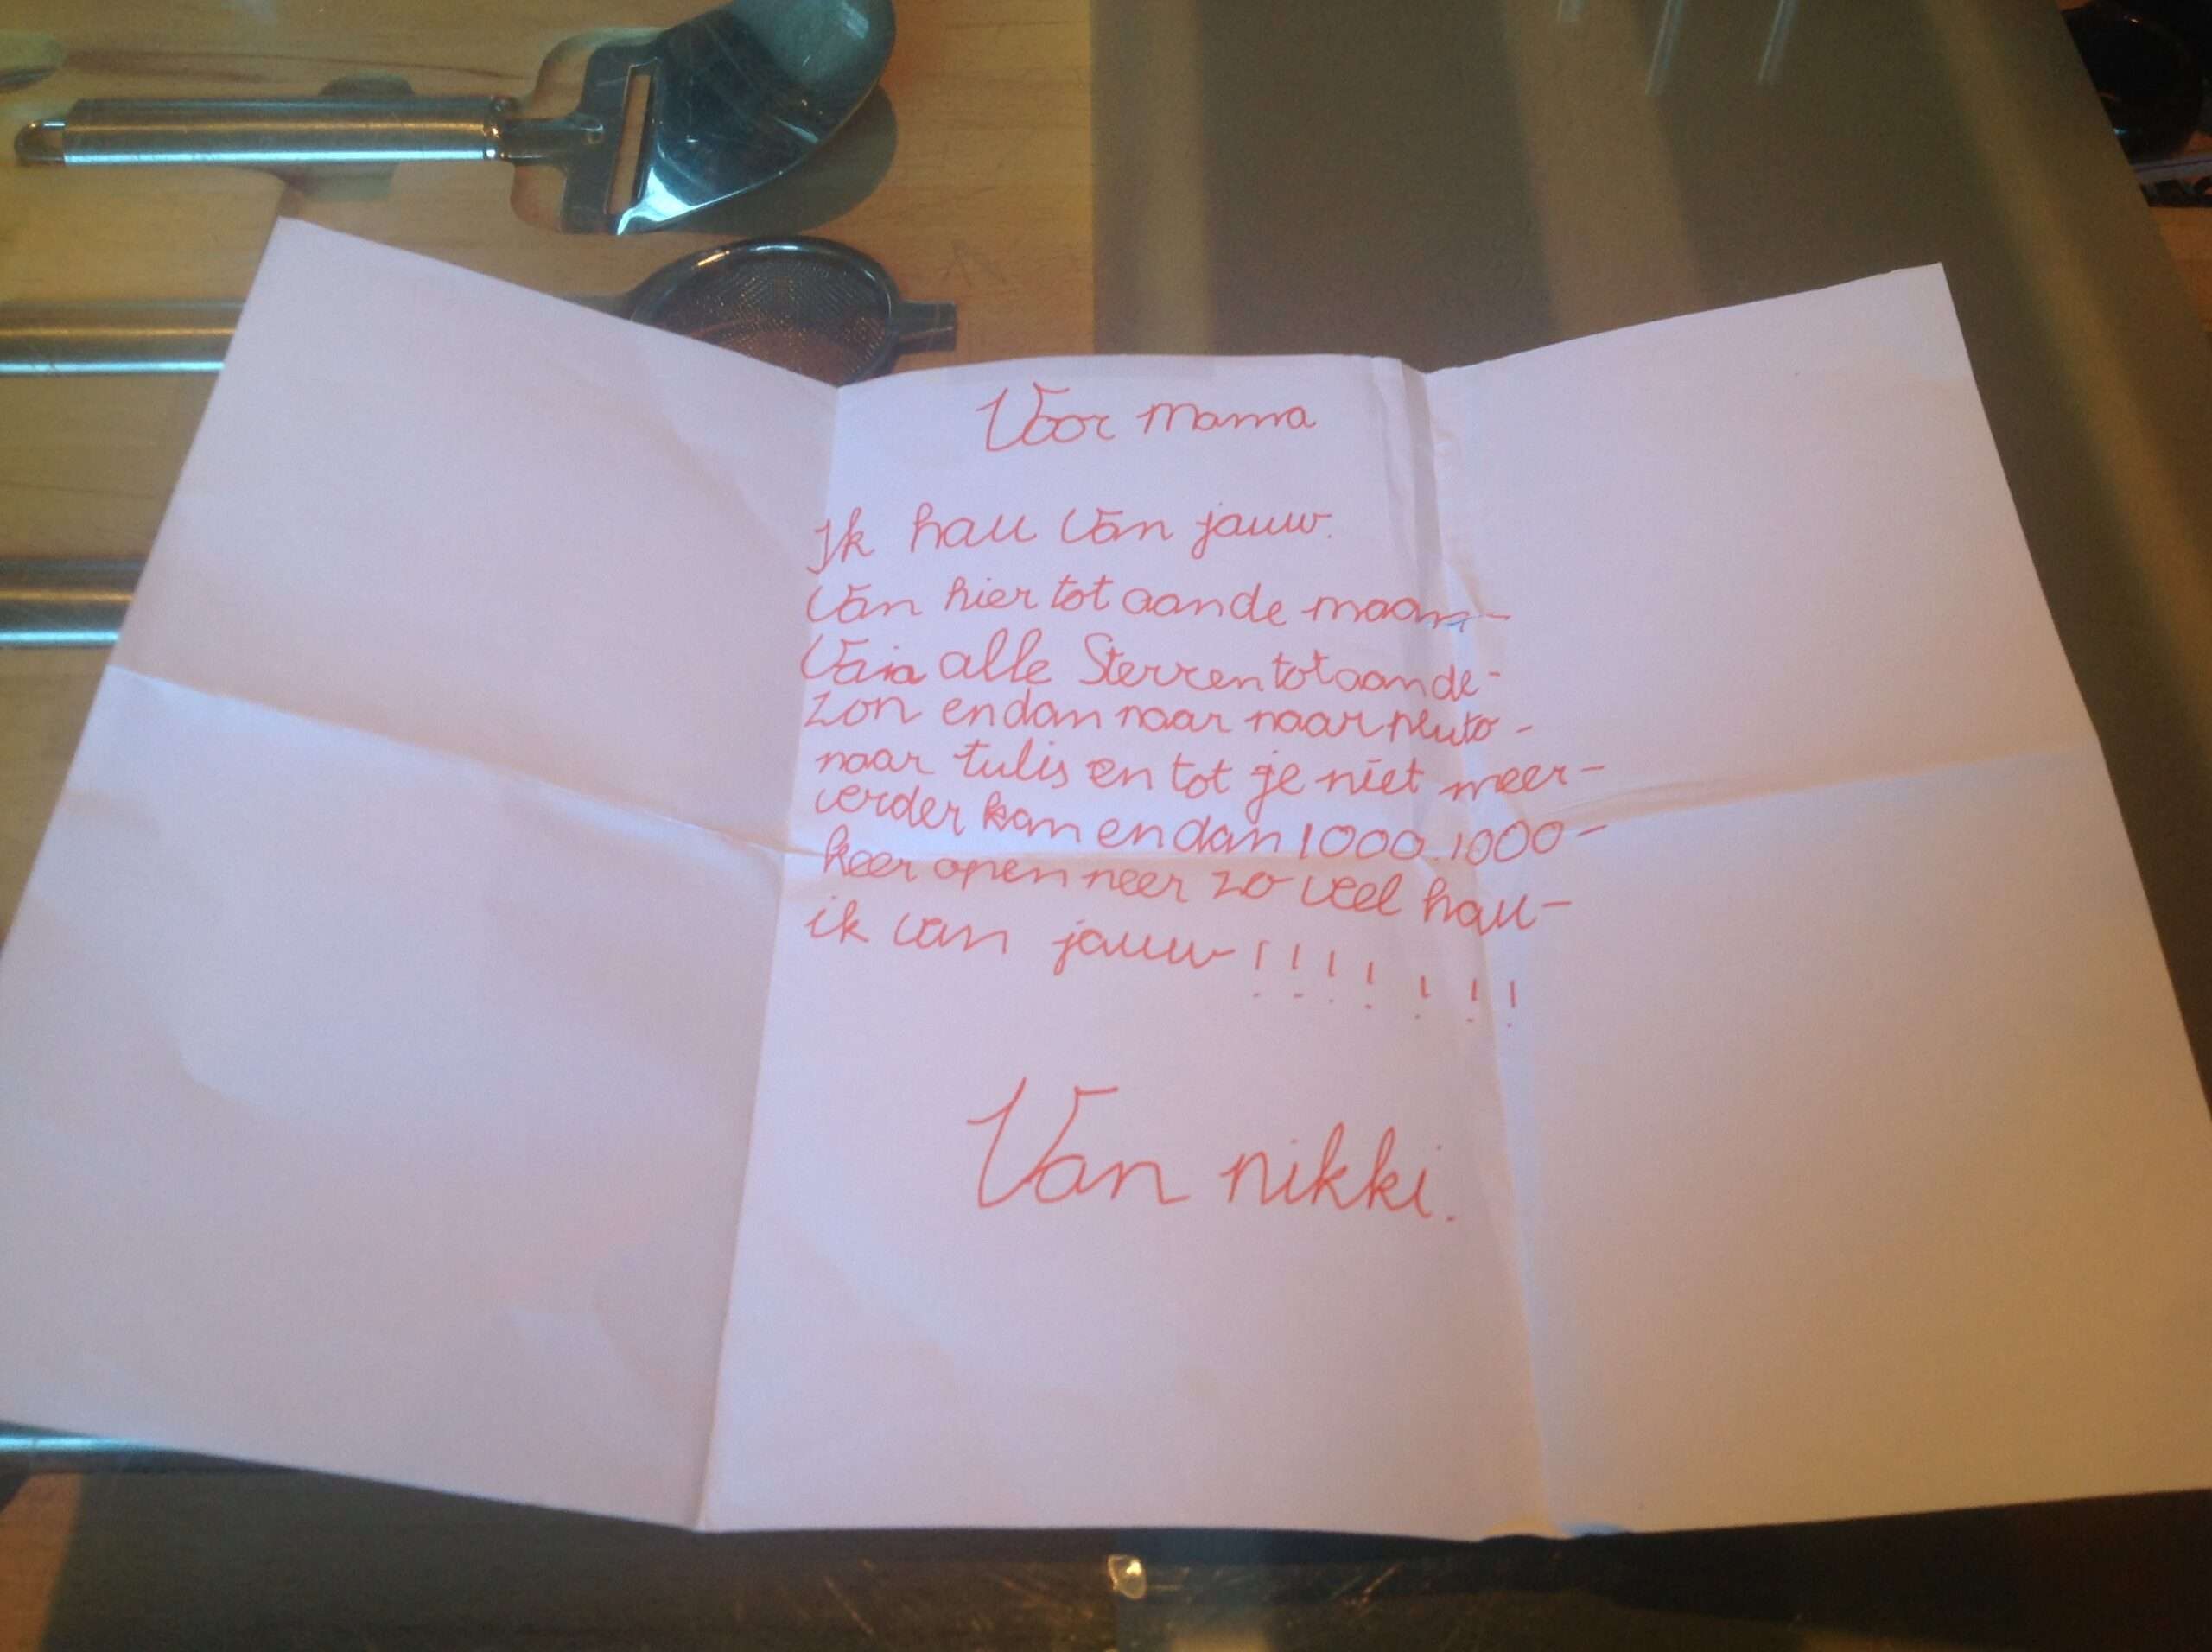 Voor mama
Ik hau van jauw.
Van hier tot aande maan-
Van alle Sterren totaande-
zon endan naar naar pluto-
naar tulis en tot je niet meer-
verder kan endan 1000.1000-
keer open neer zo veel hau-
ik van jauw!!!!!!!
Van nikki.